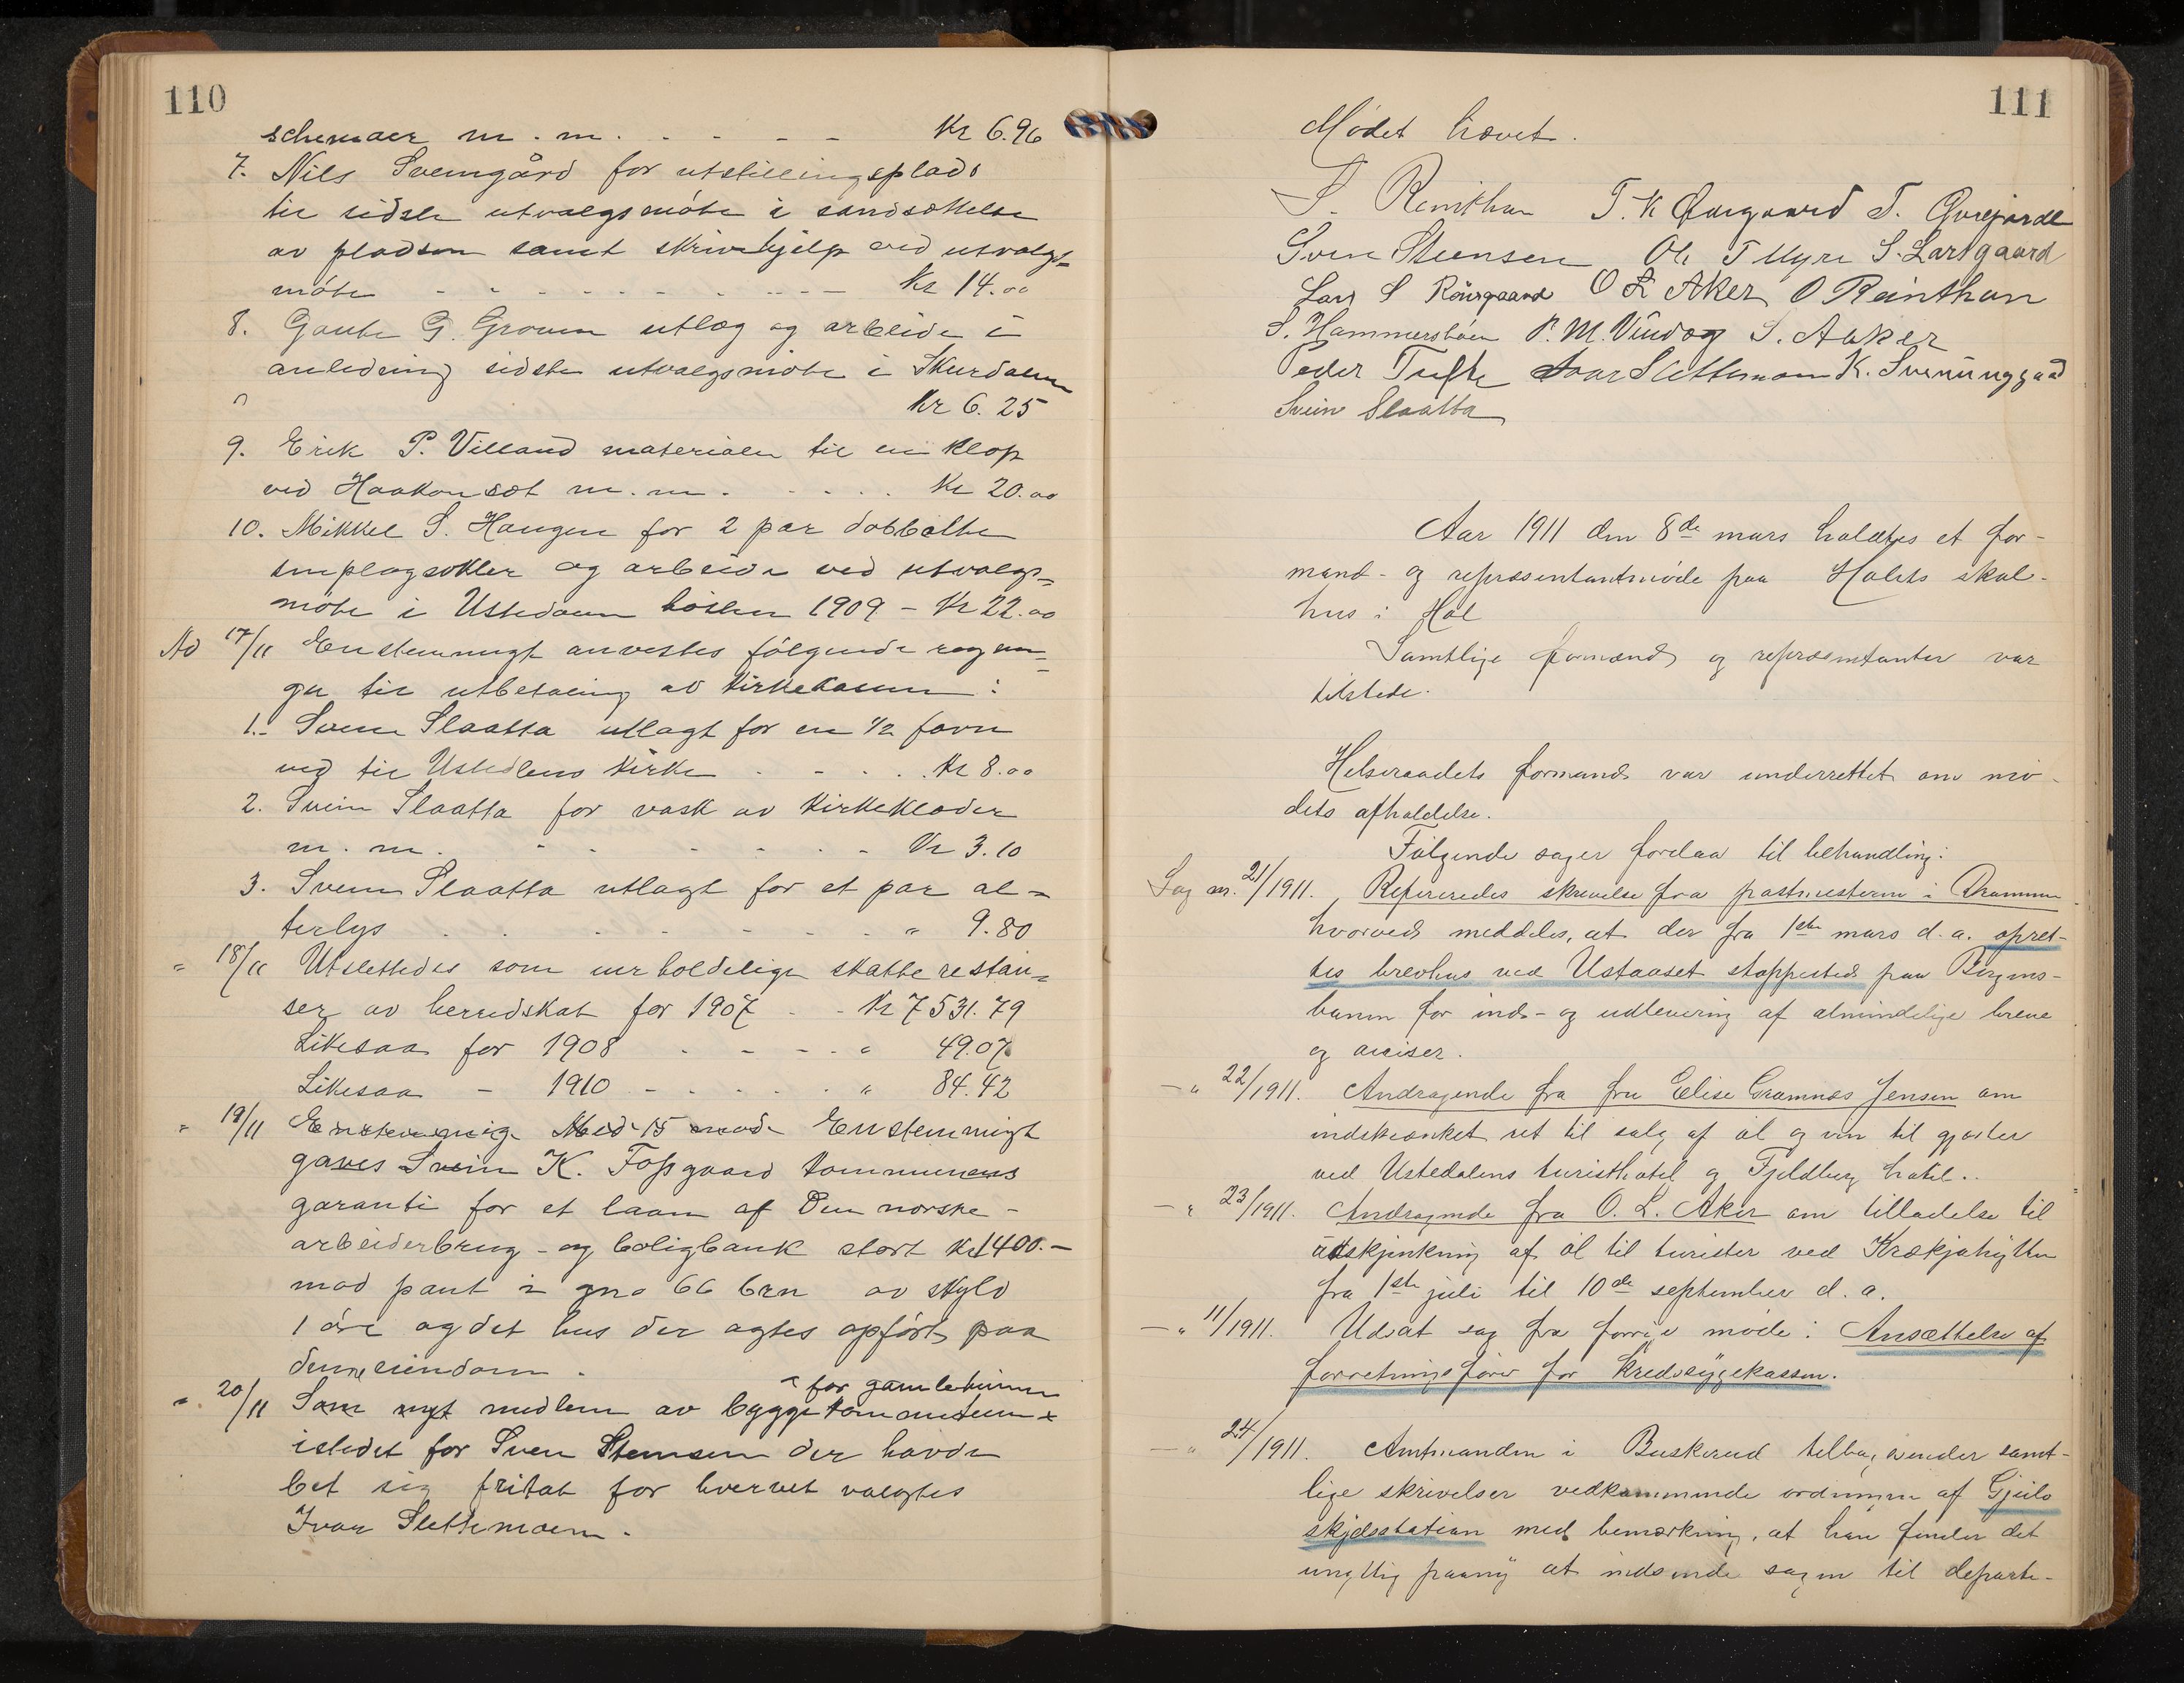 110
schemaer m. m. - - - - Kr 6.96
7. Nils Sveingård for utstillingsplads
til sidste utvalgsmöte i
av pladsen samt skrivehjelp ved utvalgs=
möte - - - - - - - - - Kr 14.00
8. Gaute G. Groven utlæg og arbeide i
anledning sidste utvalgsmöte i Skurdalen
Kr 6.25
9. Erik P. Villand materialer til en klop
ved Haakonsæt m. m. - - - - Kr 20.00
10. Mikkel S. Haugen for 2 par dobbelte
og arbeide ved utvalgs=
möte i Ustedalen hösten 1909 - Kr 22.00
Ad 17/11 Enstemmigt anvistes fölgende regnin=
ger til utbetaling av kirkekassen:
1. Svein Slaatta utlagt for en 1/2 favn
ved til Ustedalens kirke - - - . Kr 8.00
2. Svein Slaatta for vask av kirkeklæder
m. m. - - - - - - Kr 3.10
3. Svein Slaatta utlagt for et par al=
terlys . . . - - - - . " 9.80
" 18/11 Utslettedes som uerholdelige skatterestan=
ser av herredskat for 1907 - - Kr 7531.79
Likesaa for 1908 - - - - " 49.07
Likesaa - 1910 - - - - . " 84.42
" 19/11 Enstemmig Med 15 mod Enstemmigt
gaves Svein K. Fossgaard kommunens
garanti for et laan af Den norske
arbeiderbrug- og boligbank stort Kr 1400.-
mod pant i gno 66 brn av skyld
1 öre og det hus der agtes opfört paa
denne eiendom.
for gamlehjemmet
" 20/11 Som nyt medlem av byggekommiteen
istedet for Sven Stensen der havde
bet sig fritat for hvervet valgtes
Ivar Slettemoen.
111
Mødet hævet.
S. Reinthon T. K Øvrgaard T. Qvisgaard
Sven Steensen Ole T Myre S. Larsgaard
Lars S Rõingaard O L Aker O Reinthon
S. Hammersböen P. M. Vindeg S. Aaker
Peder Tufte Ivar Slettemoen K. Sveinunggaard
Svein Slaatta
Aar 1911 den 8de mars holdtes et for-
mand- og repræsentantmøde paa Holets skole-
hus i Hol
Samtlige formænd og repræsentanter var
tilstede.
Helseraadets formand var underrettet om mø-
dets afholdelse.
Følgende sager forelaa til behandling:
Sag nr. 21/1911. Refereredes skrivelse fra postmesteren i Drammen
hvorved meddeles, at der fra 1ste mars d. a. opret-
tes brevhus ved Ustaoset stoppested paa Bergens-
banen for ind- og udlevering af almindelige breve
og aviser.
- " 22/1911. Andragende fra fru Elise Gramnæs Jensen om
indskrænket ret til salg af øl og vin til gjæster
ved Ustedalens turisthotel og Fjeldberg hotel..
- " 23/1911. Andragende fra O. L. Aker om tilladelse til
udskjenkning af øl til turister ved Krækjahytten
fra 1ste juli til 10de september d. a.
- " 11/1911. Udsat sag fra forrige møde: Ansættelse af
forretningsfører for kredssygekassen.
- " 24/1911. Amtmanden i Buskerud tilbagesender samt-
lige skrivelser vedkommende ordningen af Gjeilo
skydsstation med bemærkning, at han finder det
unyttig paany at indsende sagen til departe-